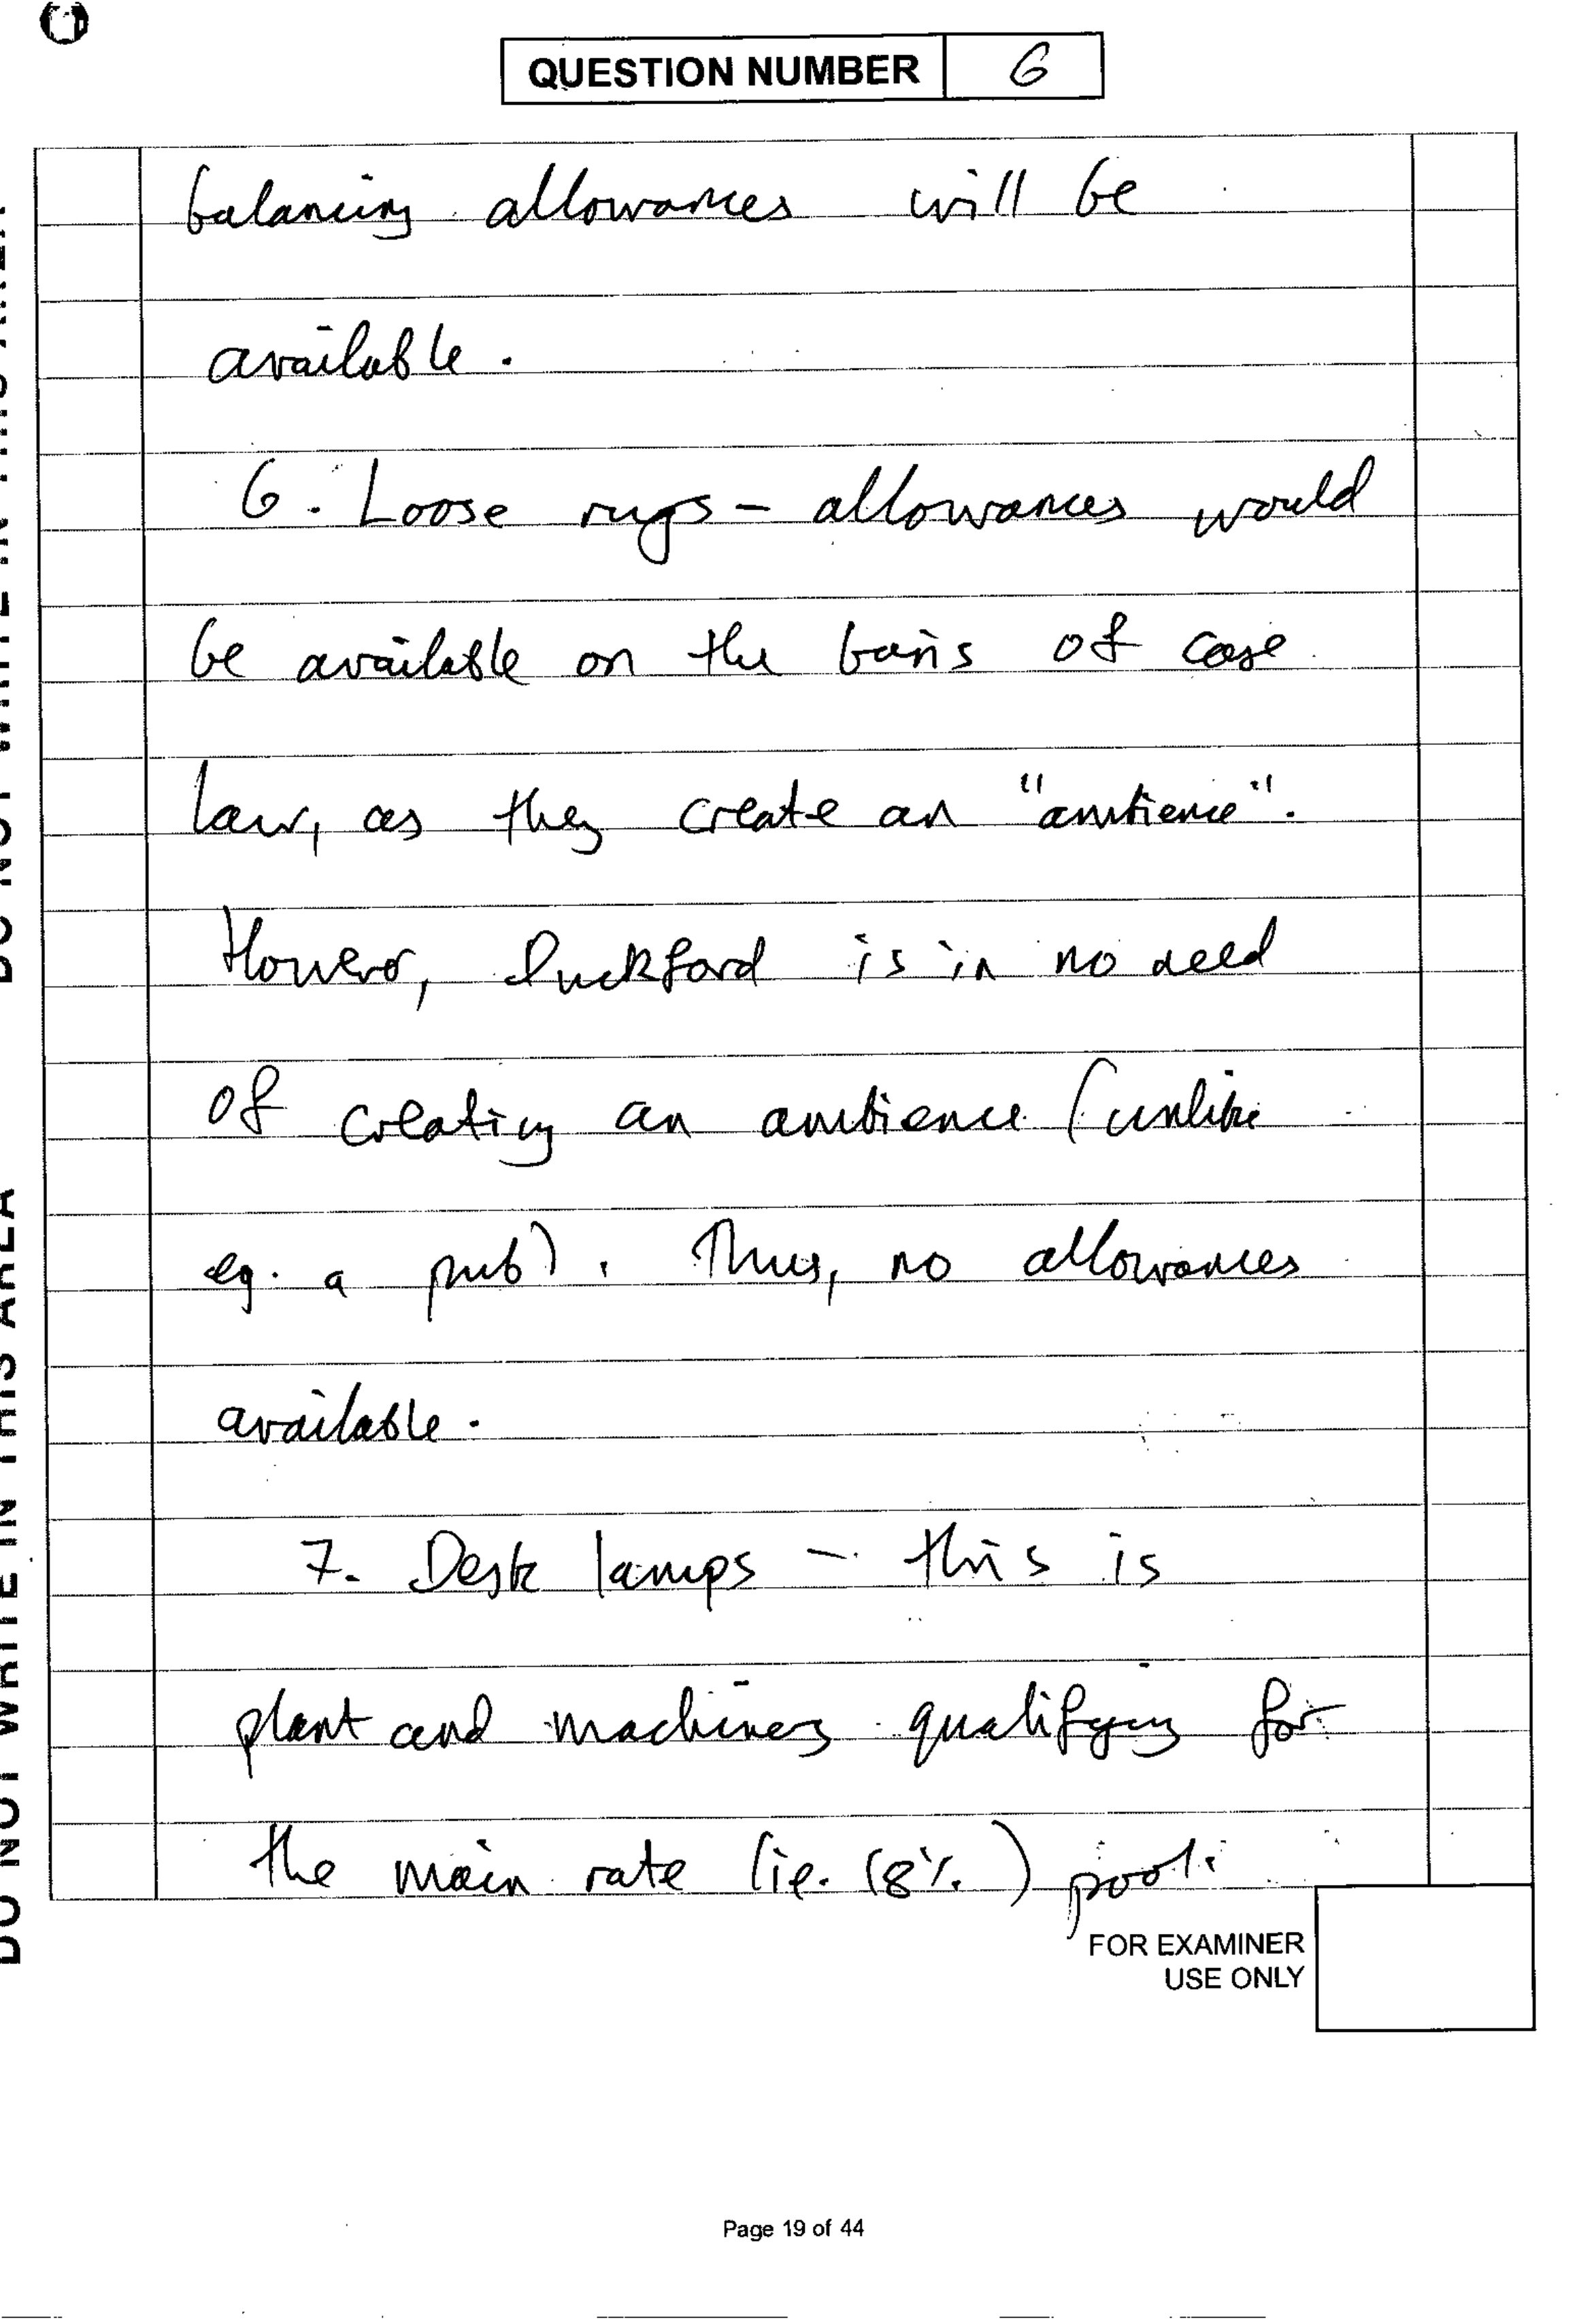 QUESTION NUMBER 6
balancing allowances will be
available.
6. Loose rugs - allowances would
be available on the basis of case
law, as they create an "ambience".
However, Duckford is in no need
of creating an ambience (unlike
eg. a pub). Thus, no allowances
available.
7. Desk lamps - this is
plant and machinery qualifying for
the main rate (ie. 18%) pool.
FOR EXAMINER
USE ONLY
Page 19 of 44
DO NOT WRITE IN THIS AREA